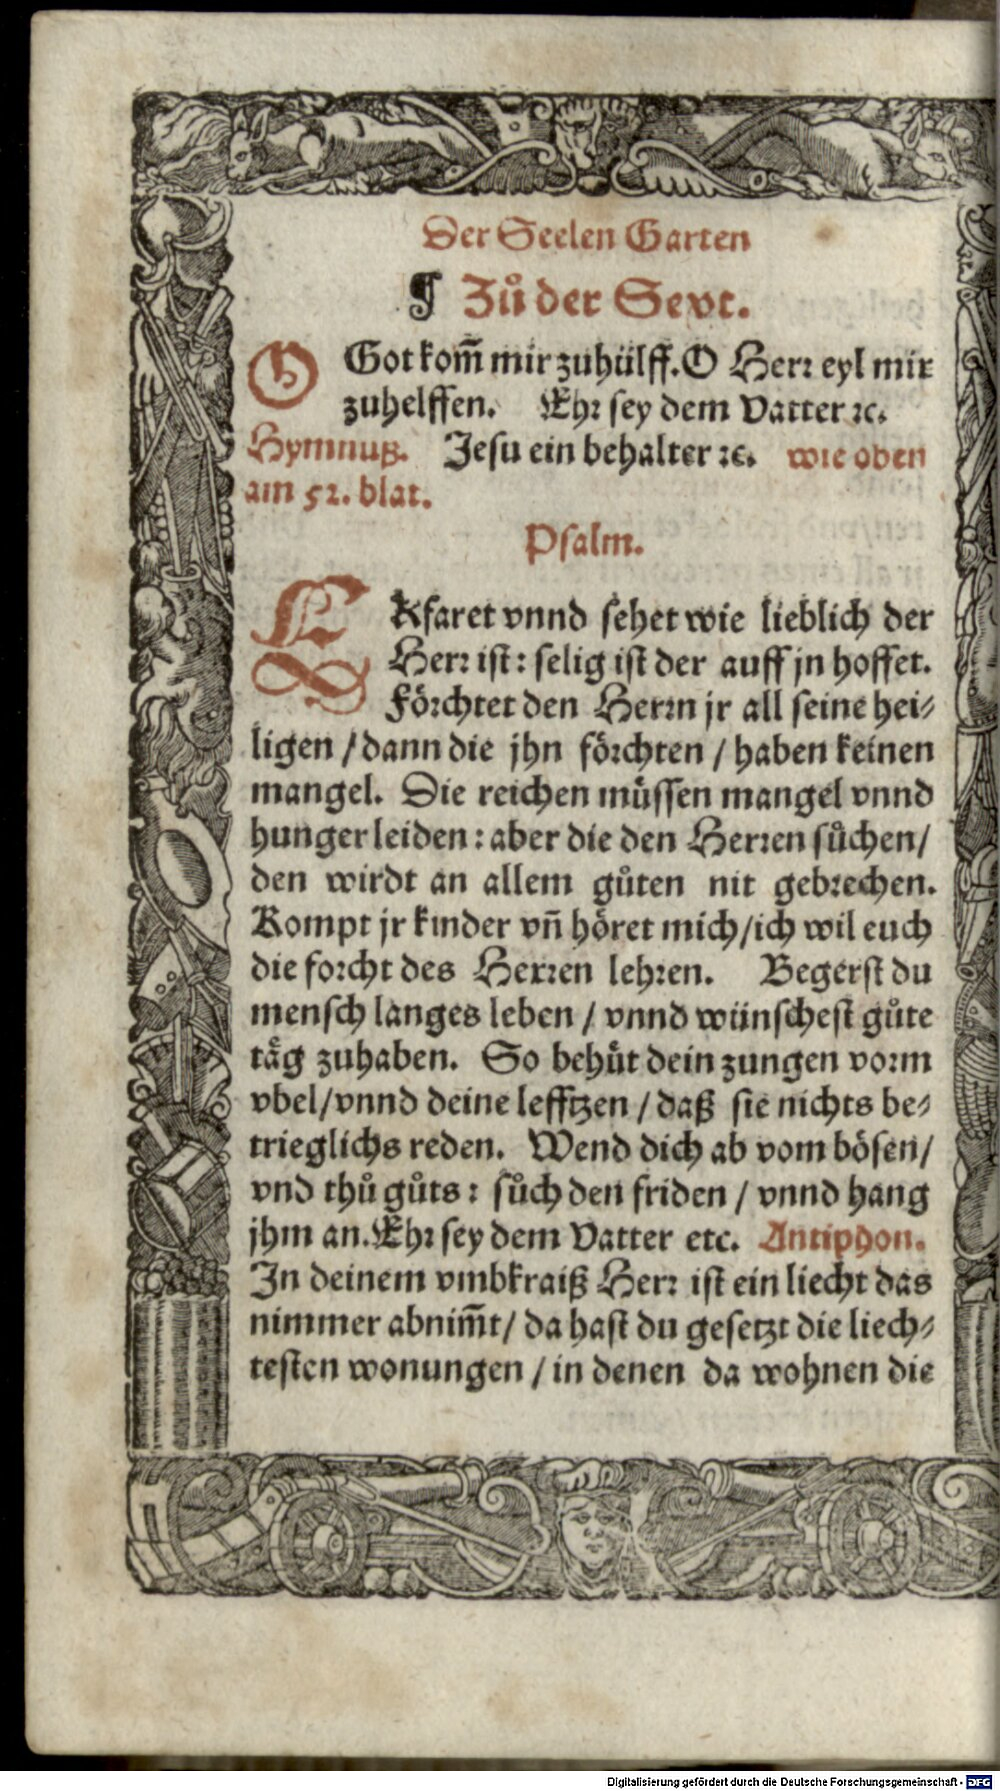 Der Seelen Garten
¶ Zů der Sext.
O Got kom̄ mir zuhülff. O Herr eyl mir
zuhelffen. Ehr sey dem Vatter ⁊c.
Hymnuß. Jesu ein behalter ⁊c. wie oben
am 52. blat.
Psalm.
ERfaret vnnd sehet wie lieblich der
Herr ist: selig ist der auff jn hoffet.
Förchtet den Herrn jr all seine hei⸗
ligen / dann die jhn förchten / haben keinen
mangel. Die reichen müssen mangel vnnd
hunger leiden: aber die den Herren sůchen/
den wirdt an allem gůten nit gebrechen.
Kompt jr kinder vn̄ höret mich/ich wil euch
die forcht des Herren lehren. Begerst du
mensch langes leben / vnnd wünschest gůte
täg zuhaben. So behüt dein zungen vorm
vbel/vnnd deine lefftzen / daß sie nichts be⸗
trieglichs reden. Wend dich ab vom bösen/
vnd thů gůts: sůch den friden / vnnd hang
jhm an. Ehr sey dem Vatter etc. Antiphon.
In deinem vmbkraiß Herr ist ein liecht das
nimmer abnim̄t/ da hast du gesetzt die liech⸗
testen wonungen / in denen da wohnen die
Digitalisierung gefördert durch die Deutsche Forschungsgemeinschaft - DFG